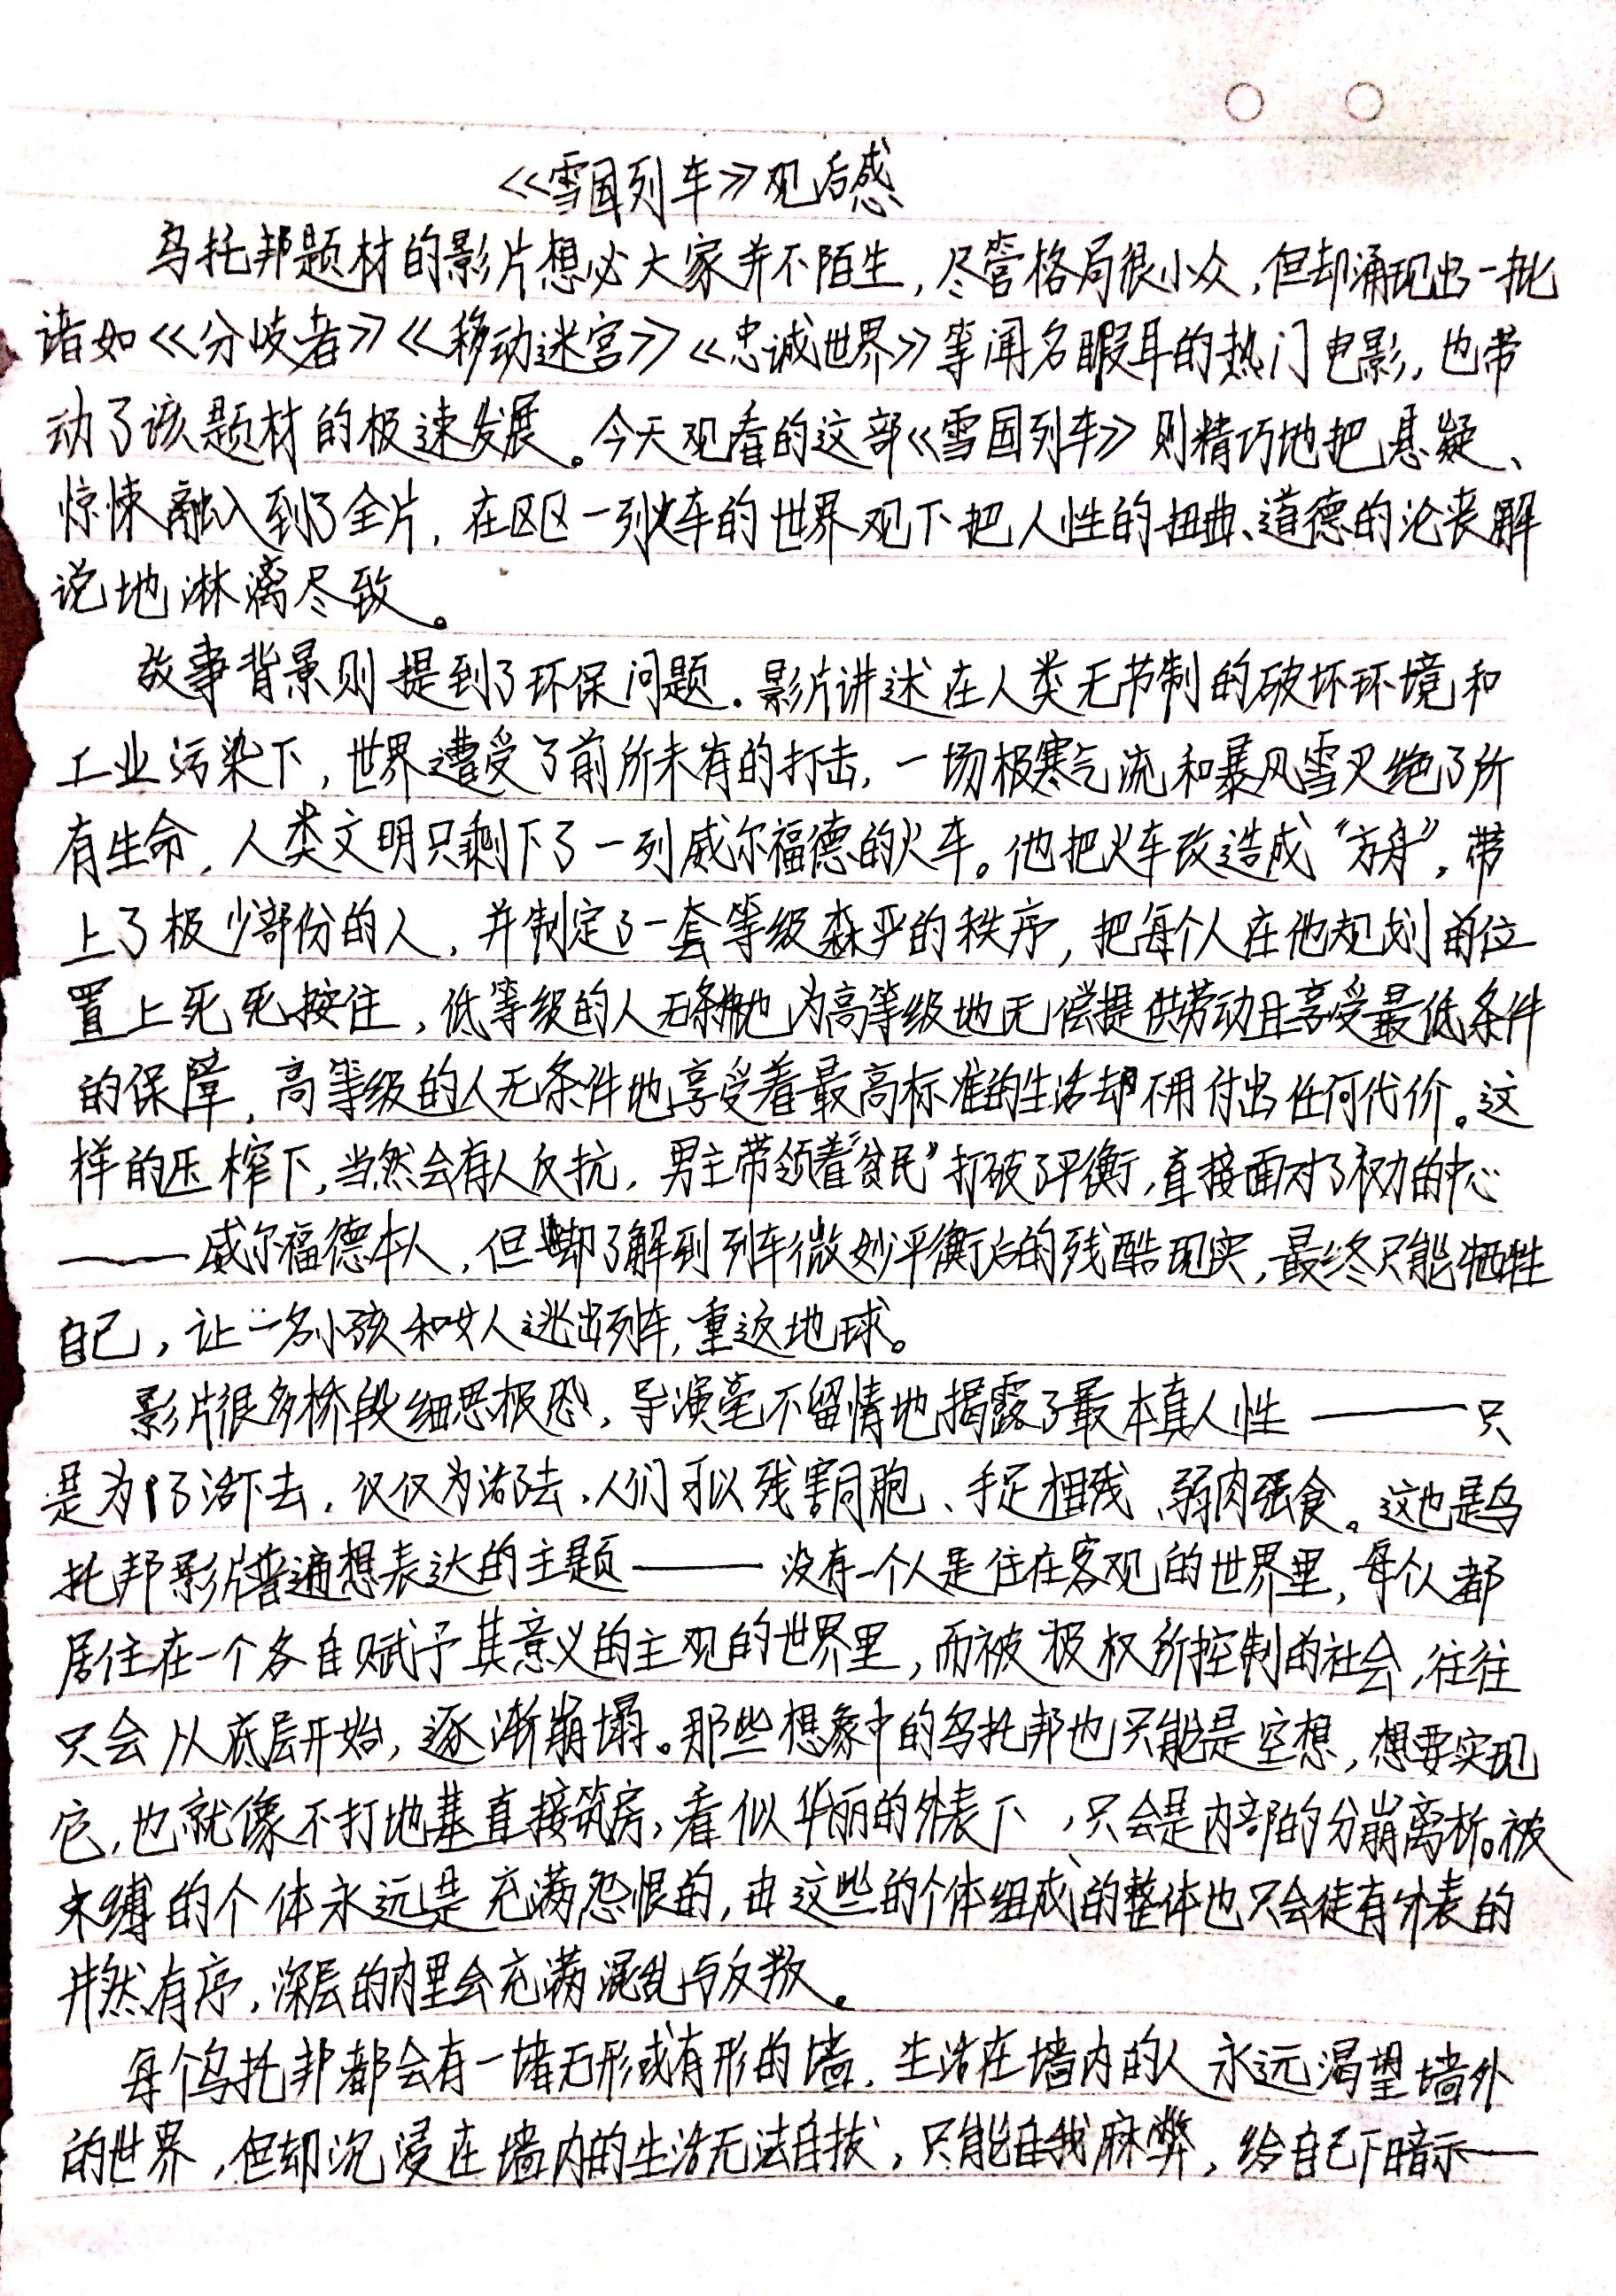 《雪国列车》观后感
乌托邦题材的影片想必大家并不陌生,尽管格局很小众,但却涌现出一批
诸如《分歧者》《移动迷宫》《忠诚世界》等闻名暇耳的热门电影,也带
动了该题材的极速发展。今天观看的这部《雪国列车》则精巧地把悬疑、
惊悚融入到了全片,在区区一列火车的世界观下把人性的扭曲、道德的沦丧解
说地淋漓尽致。
故事背景则提到了环保问题。影片讲述在人类无节制的破坏环境和
工业污染下,世界遭受了前所未有的打击,一场极寒气流和暴风雪灭绝了所
有生命,人类文明只剩下了一列威尔福德的火车。他把火车改造成“方舟”,带
上了极少部份的人,并制定了一套等级森严的秩序,把每个人在他规划的位
置上死死按住,低等级的人无条件地为高等级地无偿提供劳动且享受最低条件
的保障,高等级的人无条件地享受着最高标准的生活却不用付出任何代价。这
样的压榨下,当然会有人反抗,男主带领着“贫民”打破了平衡,直接面对了权力的中心
——威尔福德本人,但却了解到列车微妙平衡后的残酷现实,最终只能牺牲
自己,让一名小孩和女人逃出列车,重返地球。
影片很多桥段细思极恐,导演毫不留情地揭露了最本真人性——只
是为了活下去,仅仅为活下去,人们可以残害同胞、手足相残、弱肉强食。这也是乌
托邦影片普遍想表达的主题——没有一个人是住在客观的世界里,每个人都
居住在一个各自赋予其意义的主观的世界里,而被极权所控制的社会,往往
只会从底层开始,逐渐崩塌。那些想象中的乌托邦也只能是空想,想要实现
它,也就像不打地基直接筑房,看似华丽的外表下,只会是内部的分崩离析。被
束缚的个体永远是充满怨恨的,由这些的个体组成的整体也只会徒有外表的
井然有序,深层的内里会充满混乱与反叛。
每个乌托邦都会有一堵无形或有形的墙,生活在墙内的人永远渴望墙外
的世界,但却沉浸在墙内的生活无法自拔,只能自我麻弊,给自己下暗示——